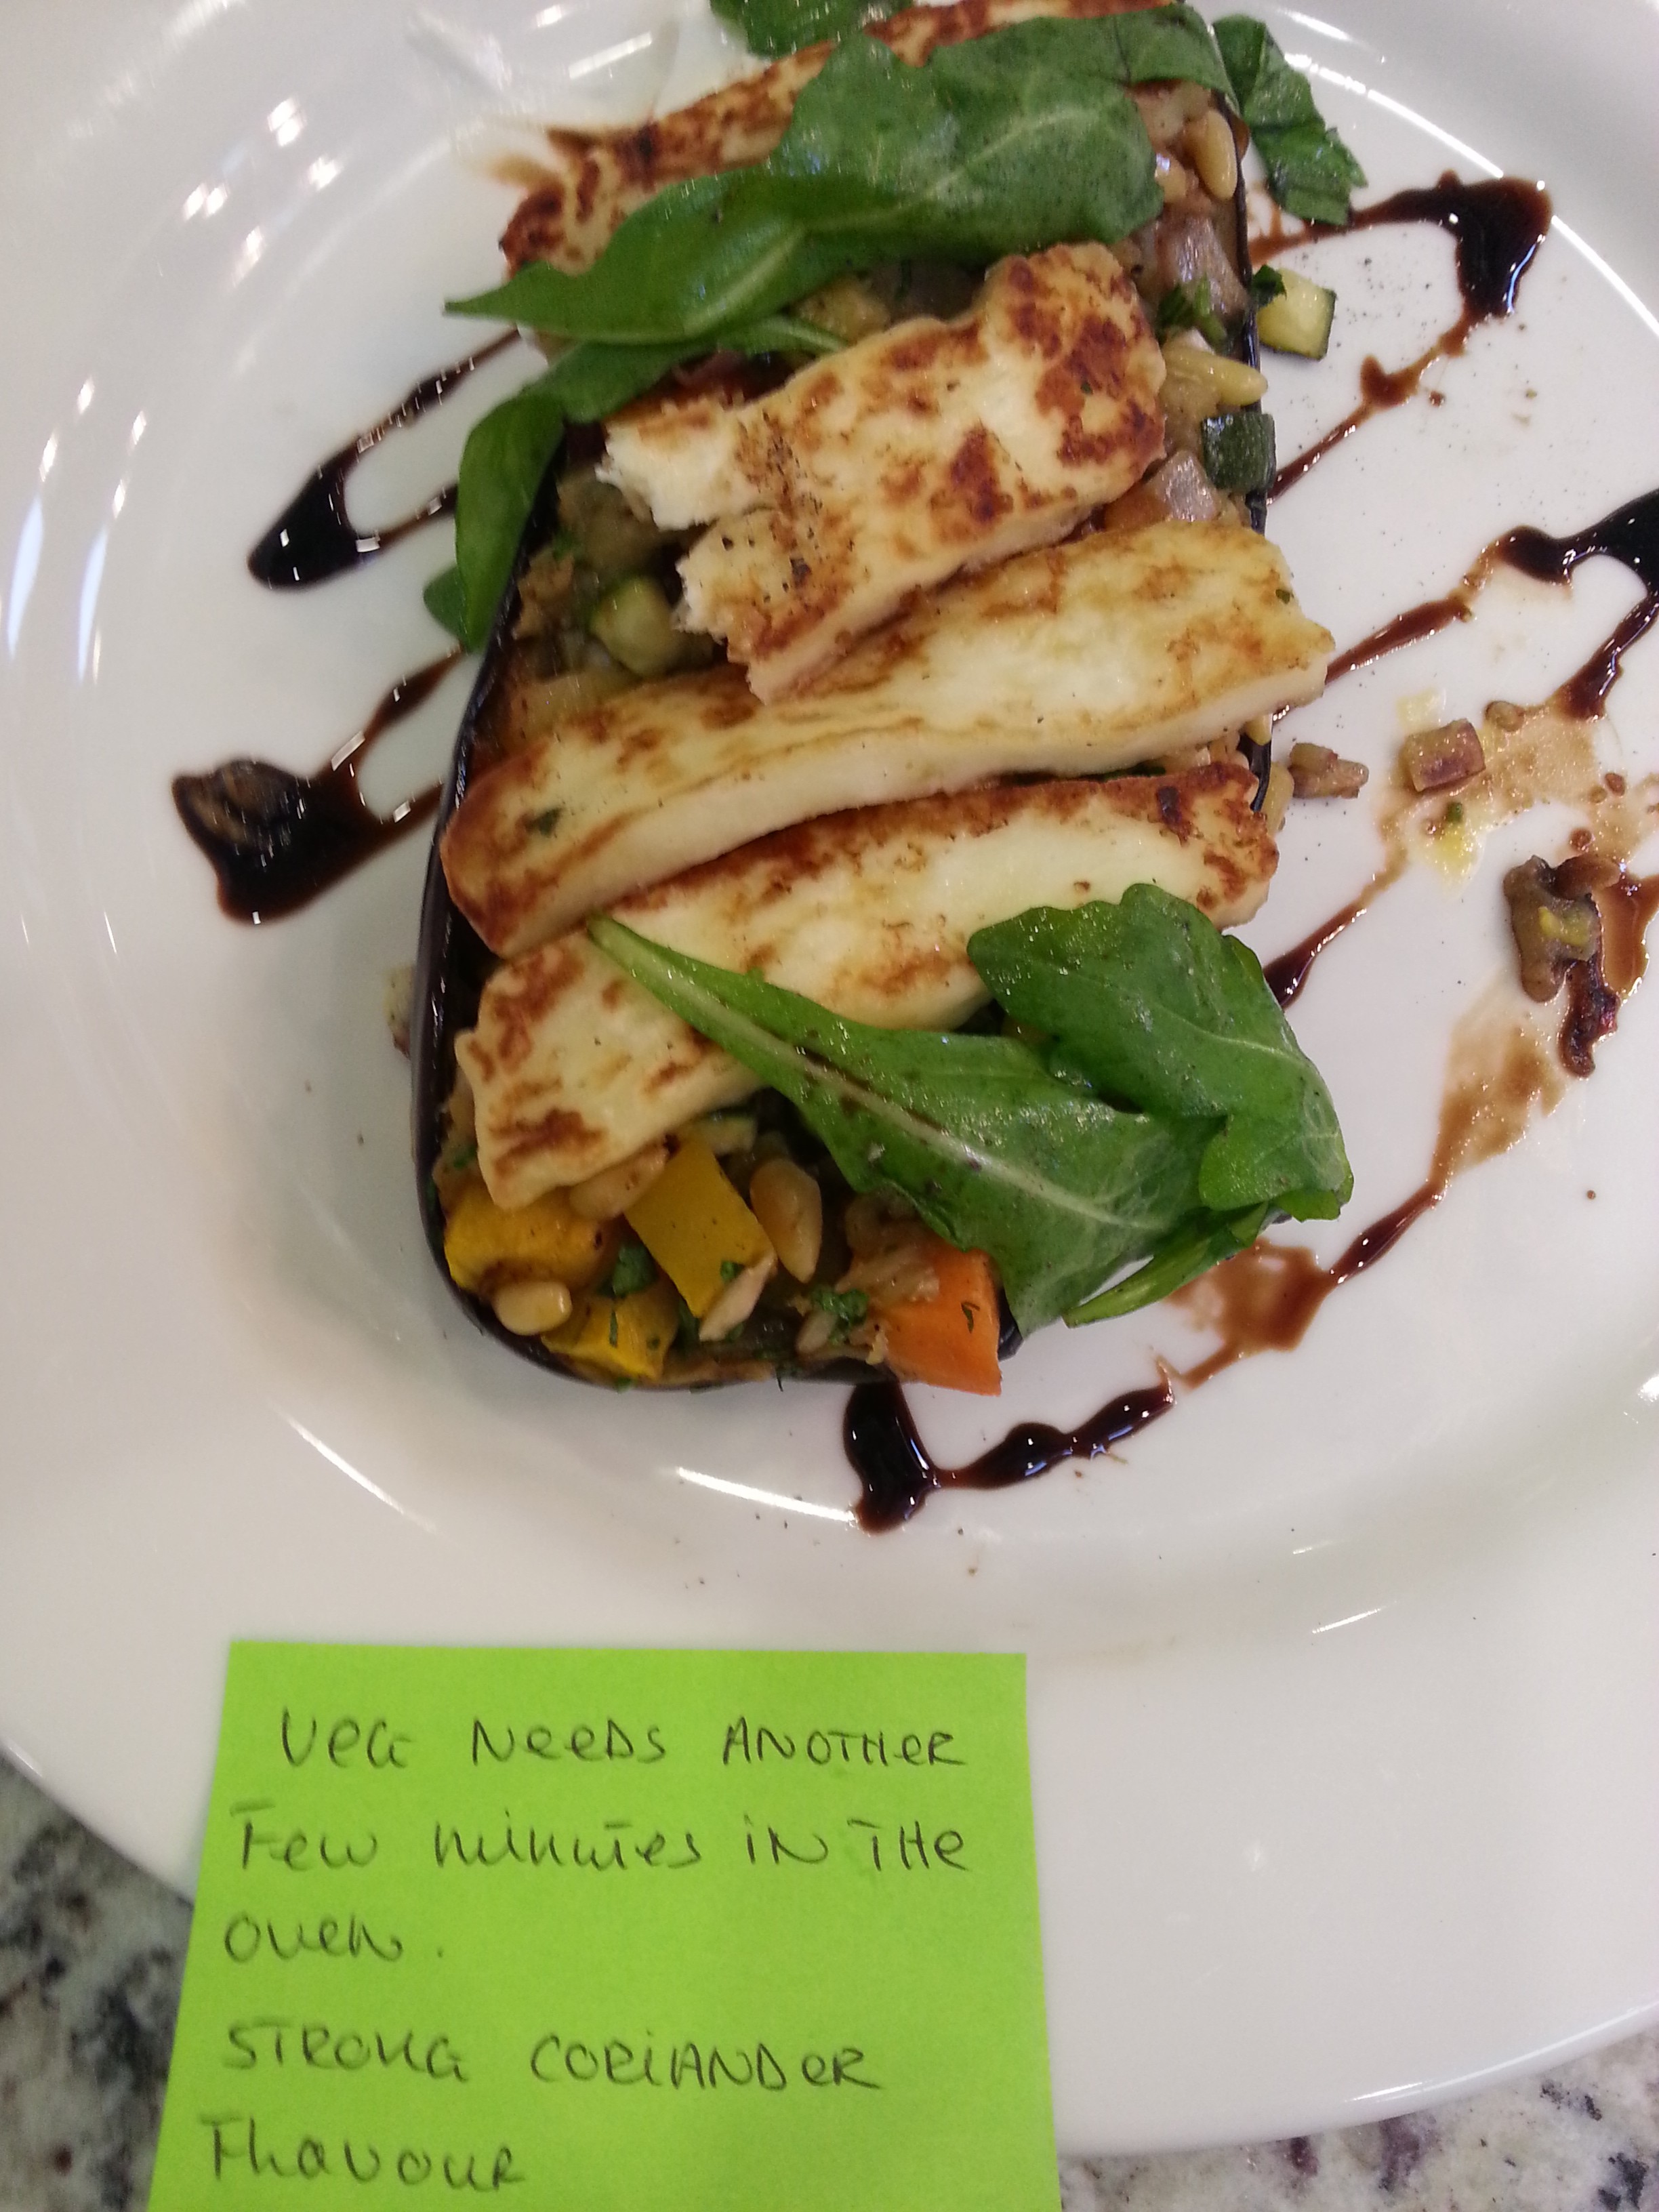 Veg Needs Another
Few minutes in the
oven.
Strong Coriander
Flavour